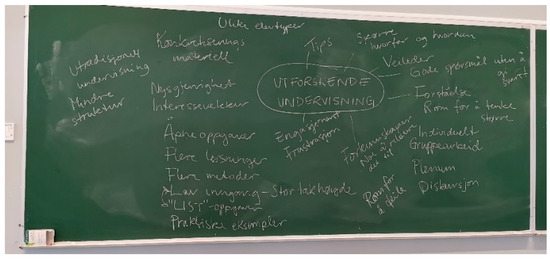 Ulike elevtyper
Konkretiserings
materiell
Utradisjonell
undervisning
Mindre
struktur
Nysgjerrighet
Interessevekker
Åpne oppgaver
Flere løsninger
Flere metoder
Lav inngang - Stor takhøyde
"LIST"-oppgaver
Praktiske eksempler
Tips
UTFORSKENDE
UNDERVISNING
Engasjement
Frustrasjon
Forkunnskaper
Rom for
å feile
Større
hvorfor og hvordan
Veileder
Gode spørsmål uten å
gi svaret
Forståelse
Rom for å tenke
større
Individuelt
Gruppearbeid
Plenum
Diskusjon